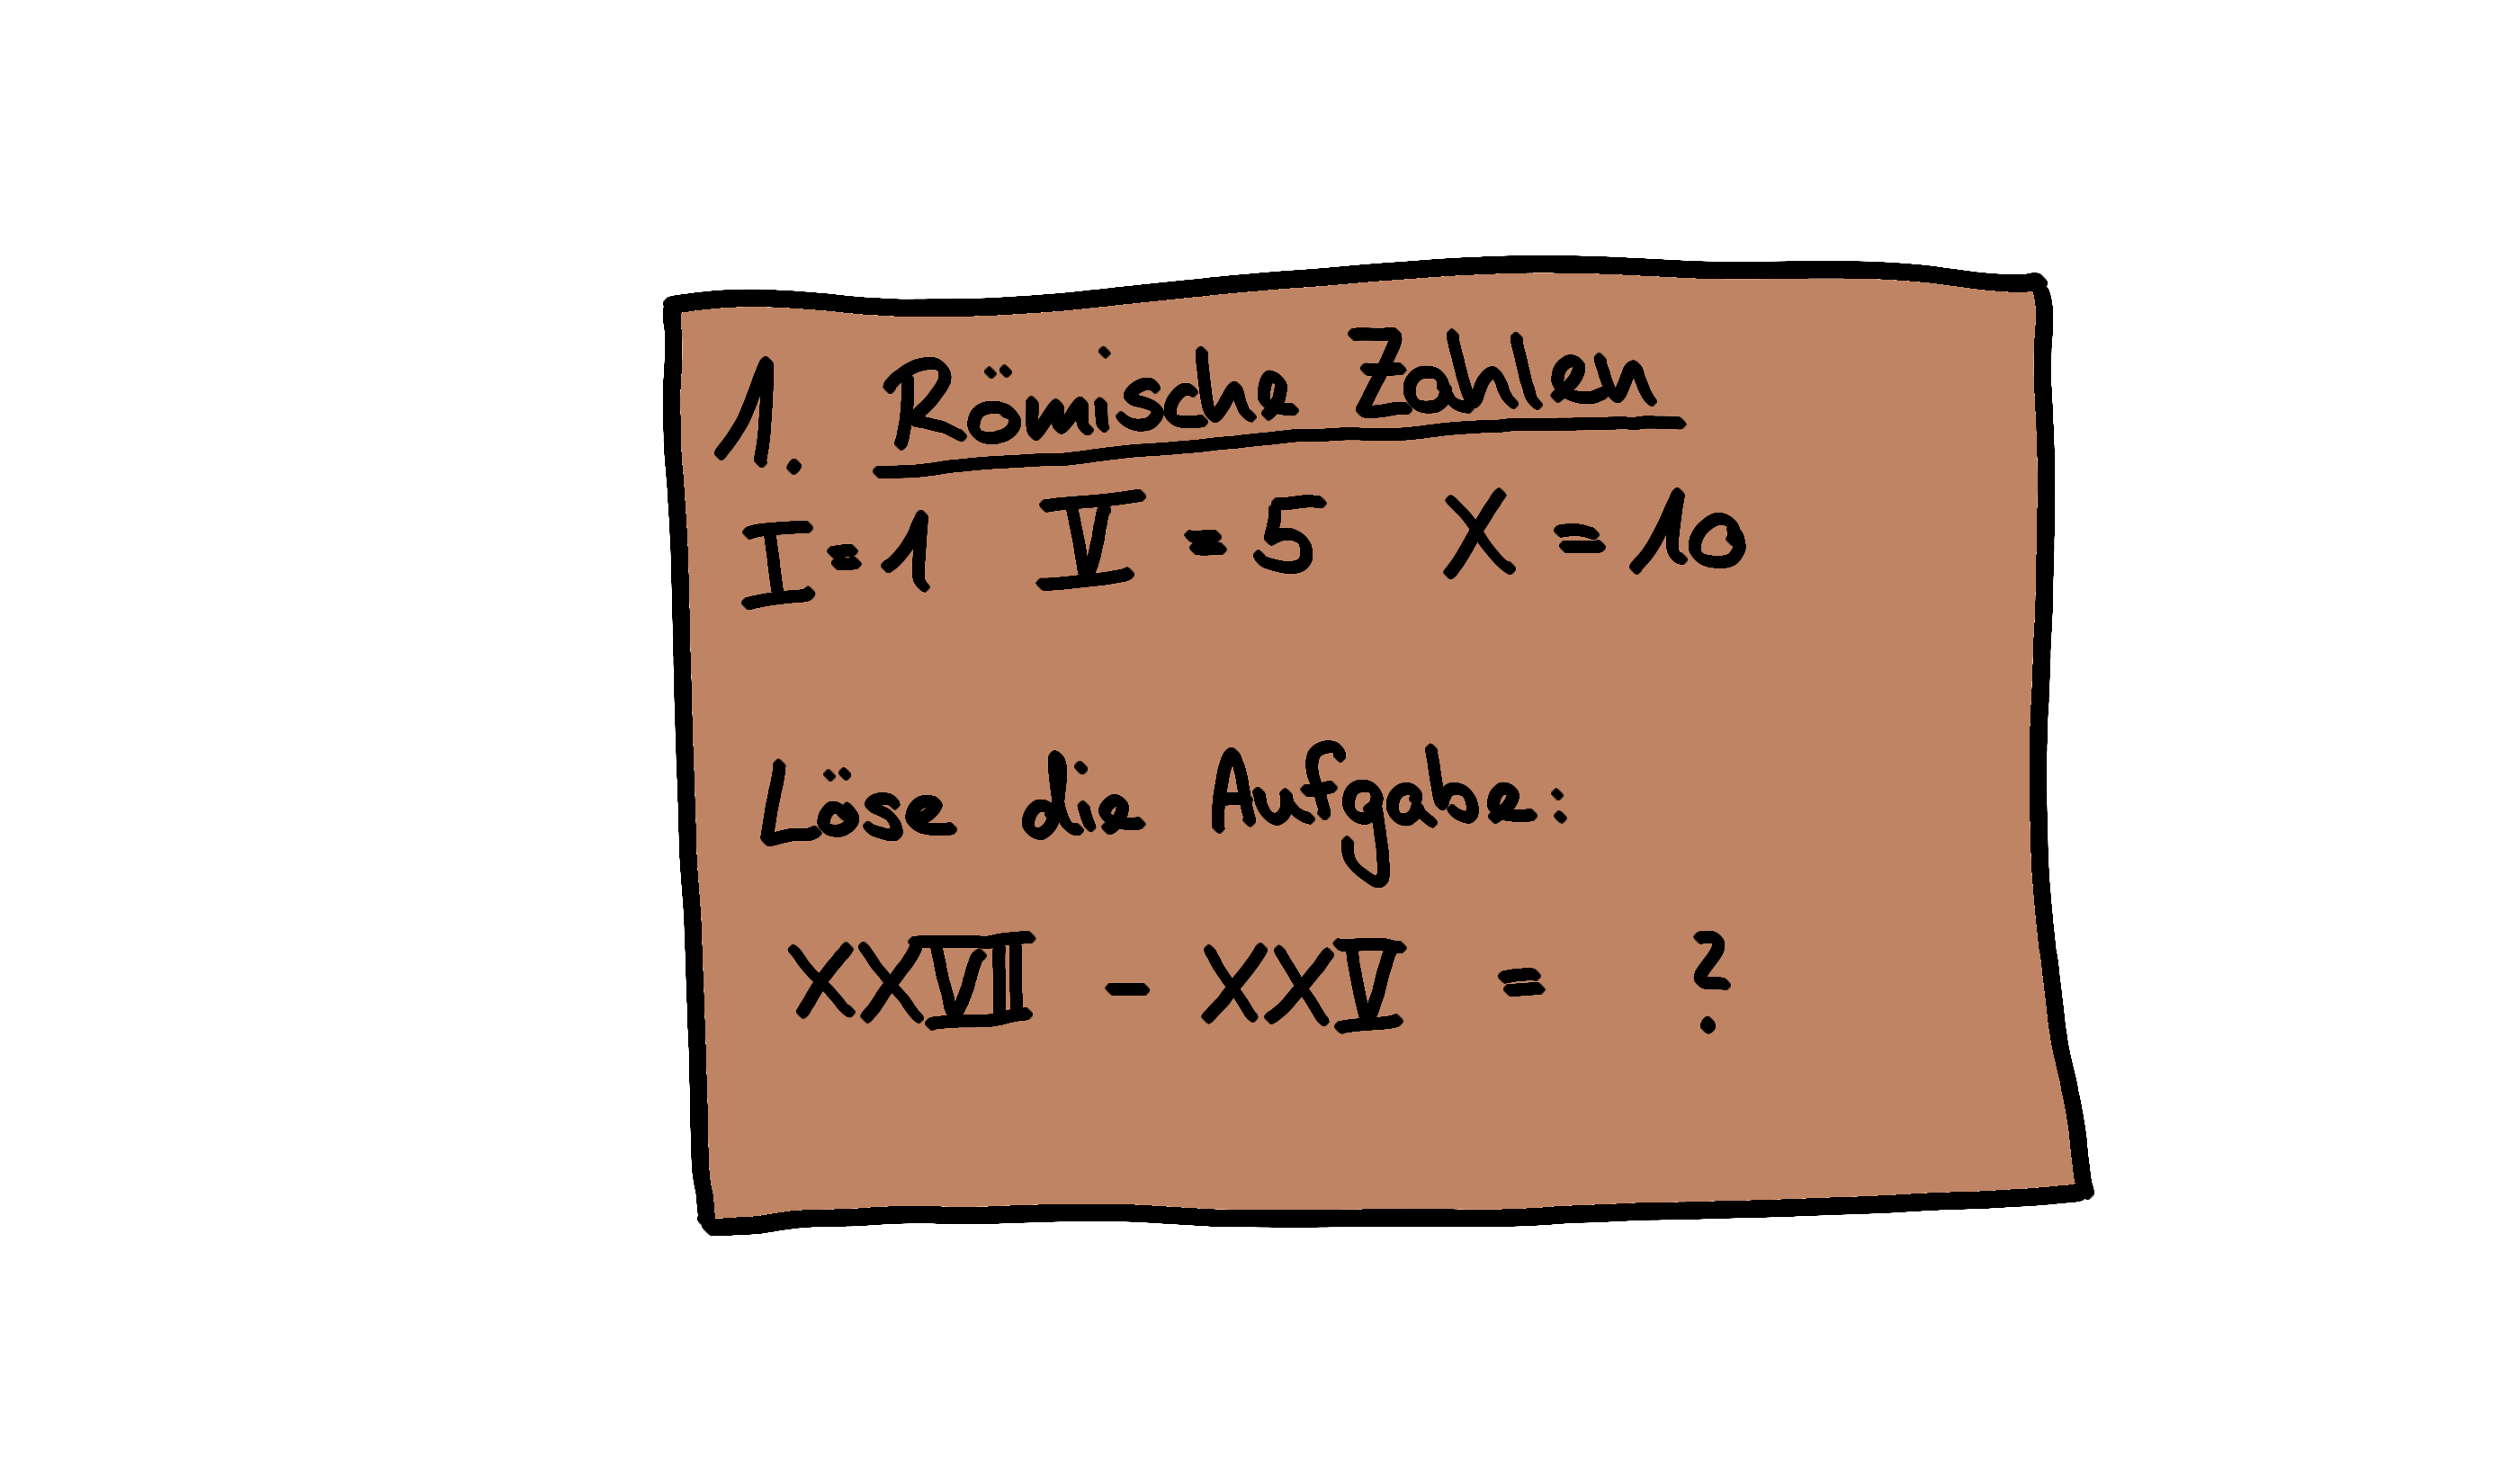 1. Römische Zahlen
I=1 V=5 X=10
Löse die Aufgabe:
XXVII - XXV = ?